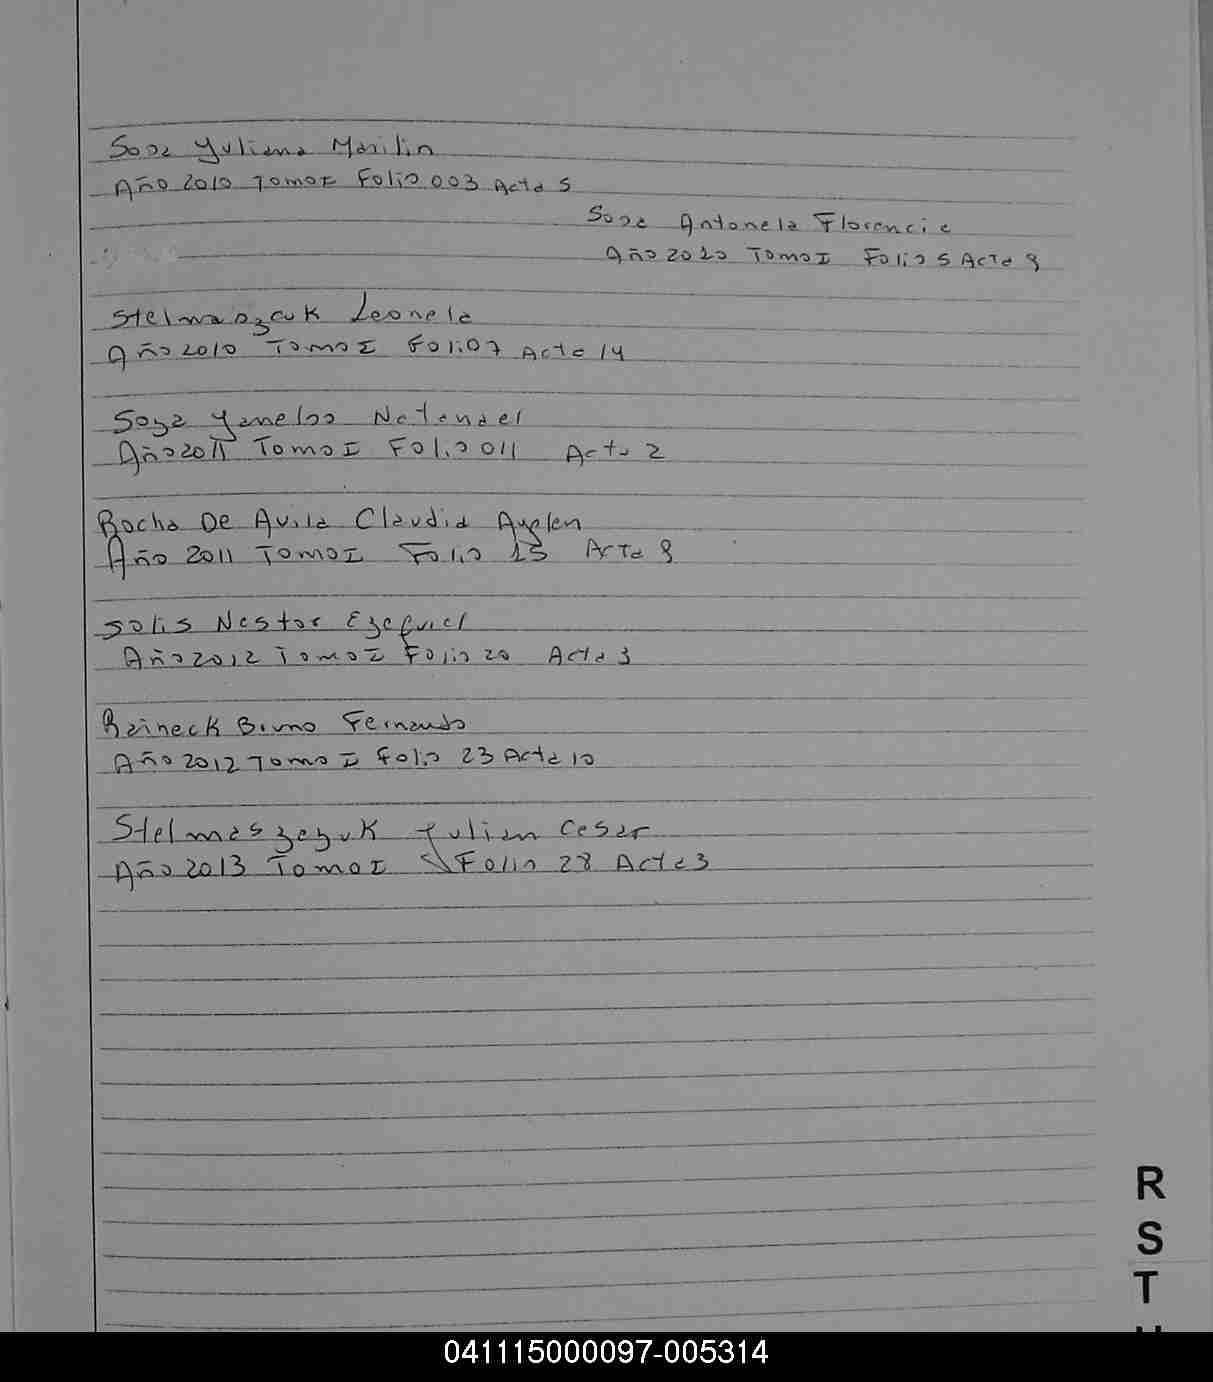 Sosa Yuliana Marilin
Año 2010 Tomo I Folio 003 Acta 5
Sosa Antonela Florencia
Año 2010 Tomo I Folio 5 Acta 9
Stelmaszcuk Leonela
Año 2010 Tomo I Folio 7 Acta 14
Soza Natanael
Año 2011 Tomo I Folio 011 Acta 2
Rocha De Avila Claudia Ayelen
Año 2011 Tomo I Folio 15 Acta 9
Solis Nestor Ezequiel
Año 2012 Tomo I Folio 20 Acta 3
Reineck Bruno Fernando
Año 2012 Tomo I Folio 23 Acta 10
Stelmaszezuk Julian Cesar
Año 2013 Tomo I Folio 28 Acta 3
R
S
T
041115000097-005314